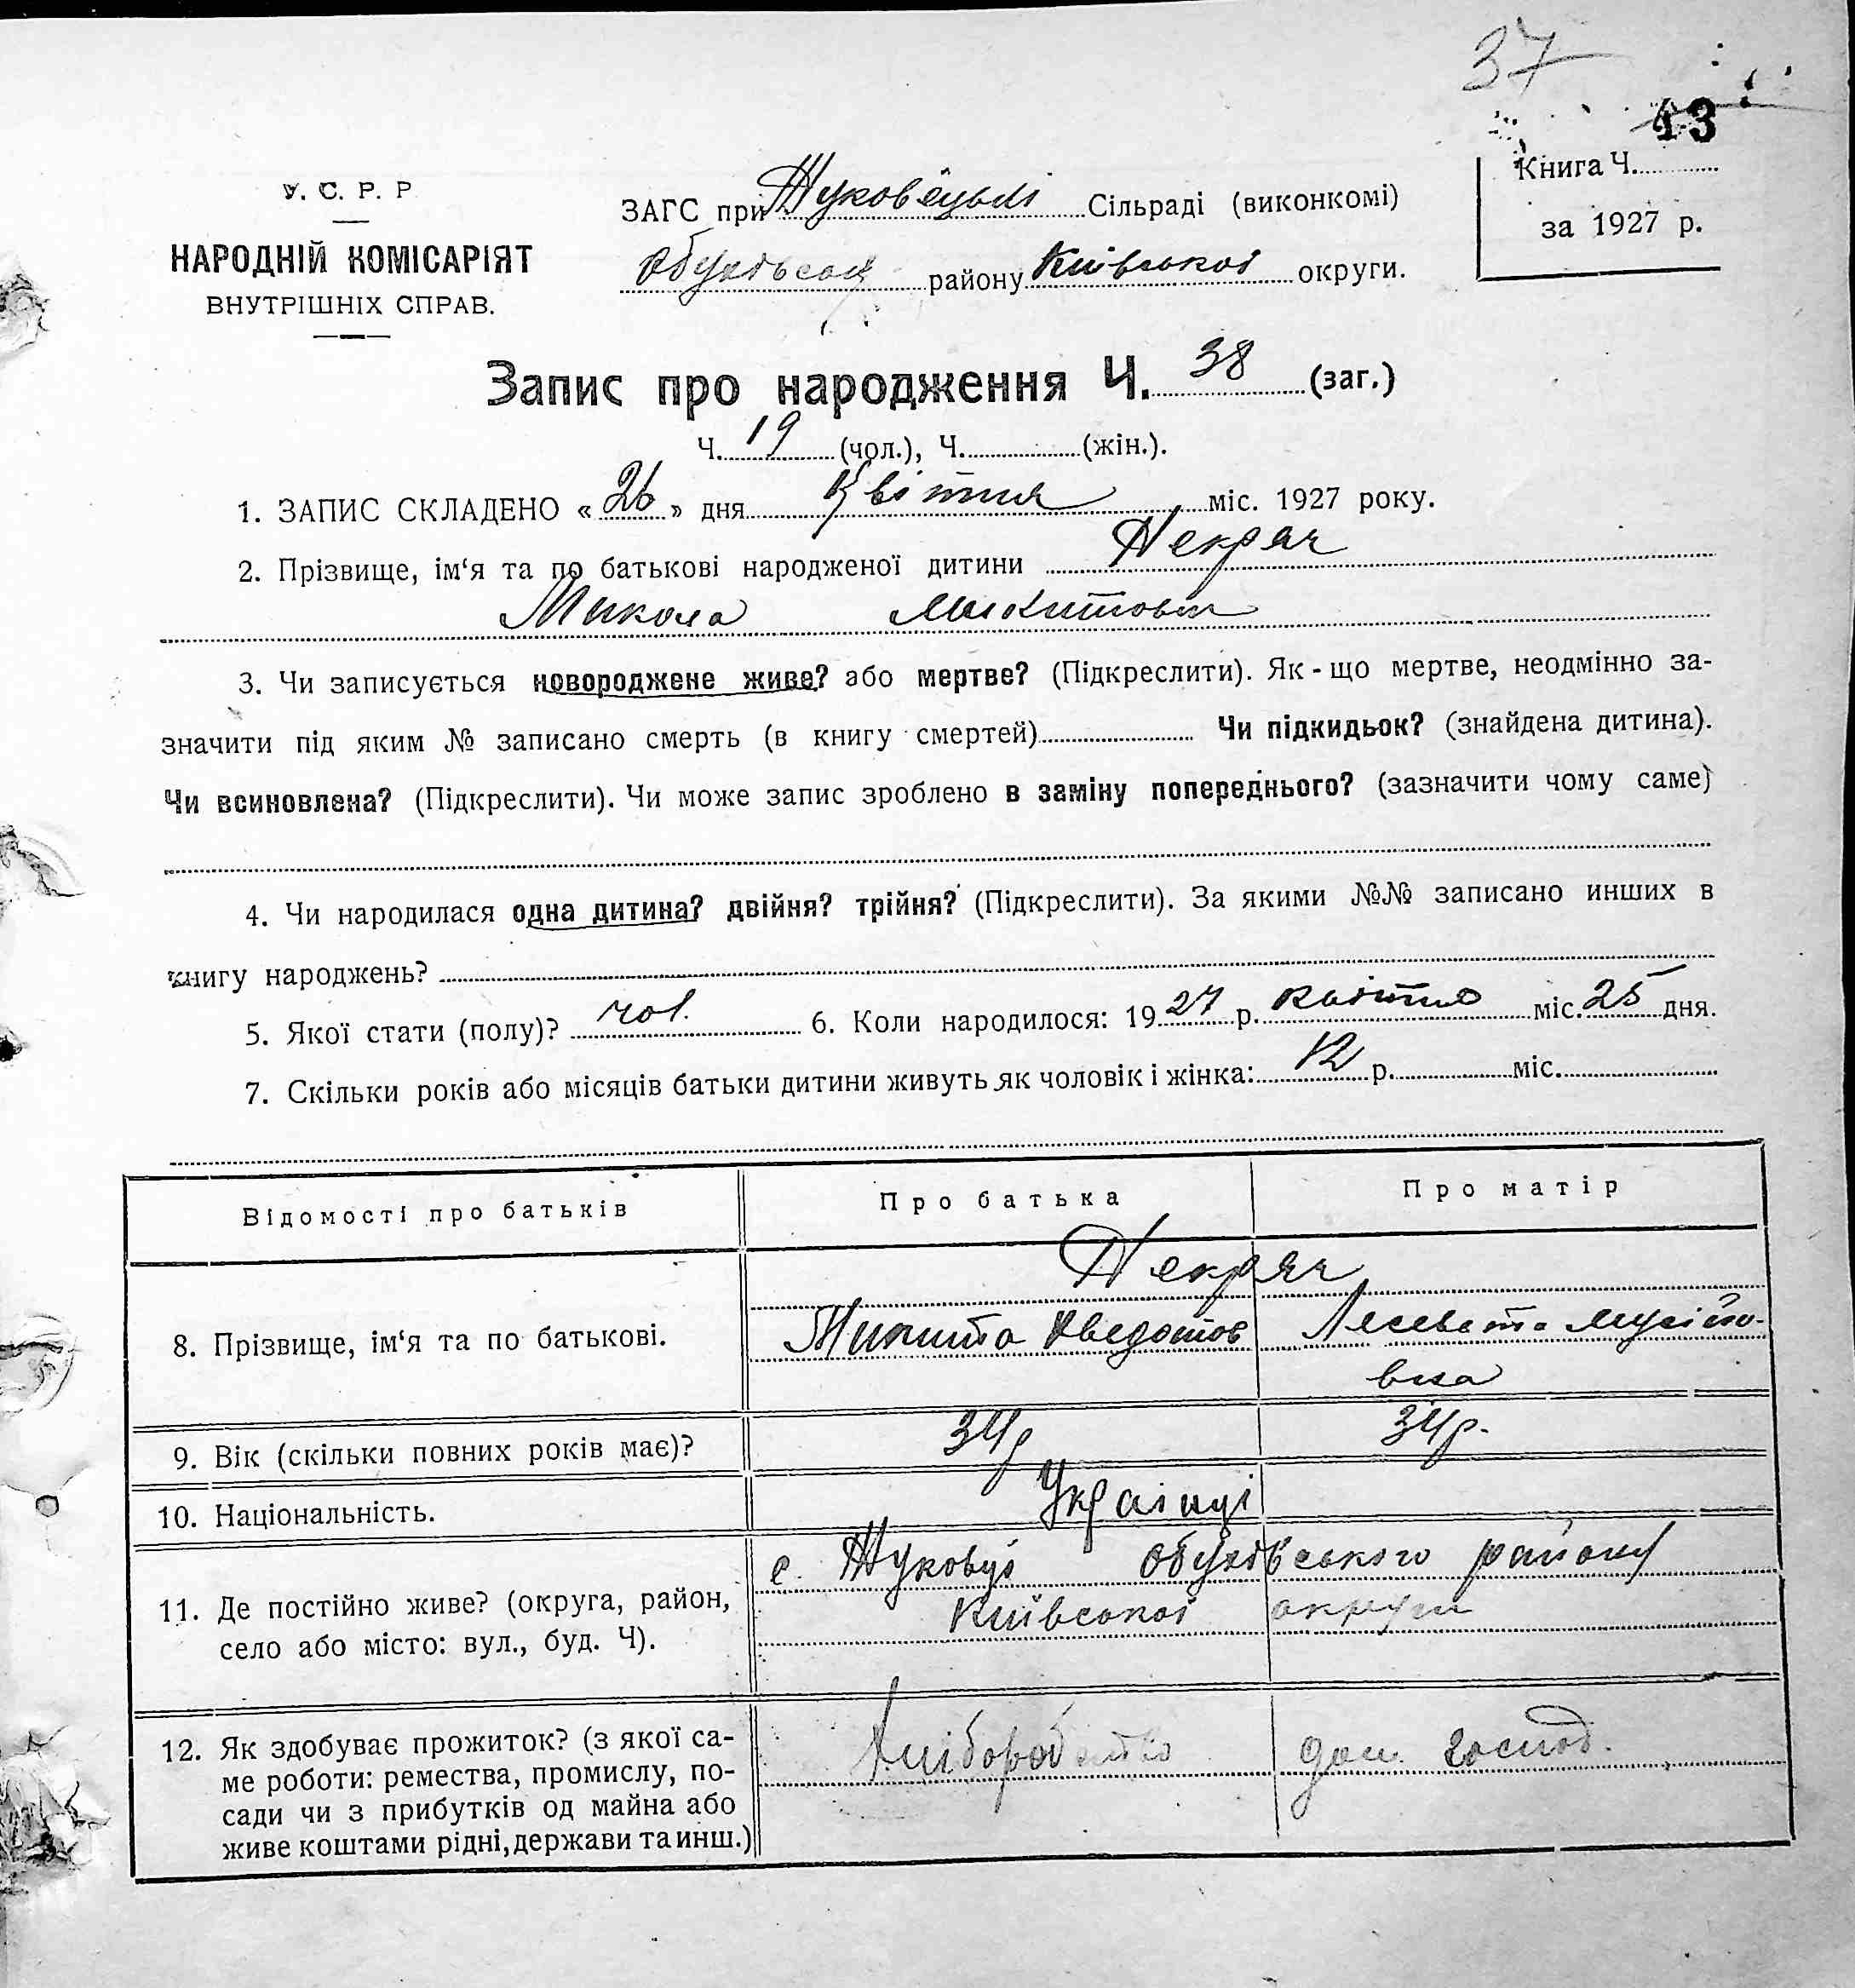 37
43
Книга Ч.
за 1927 р.
У. С. Р. Р
НАРОДНІЙ КОМІСАРІЯТ
ВНУТРІШНІХ СПРАВ.
ЗАГС при Жуковецькі Сільраді (виконкомі)
району Київської округи.
Запис про народження Ч. 38 (заг.)
Ч. 19 (чол.), Ч. (жін.).
1. ЗАПИС СКЛАДЕНО « 26 » дня Квітня міс. 1927 року.
2. Прізвище, ім‘я та по батькові народженої дитини Некряч
Микола Микитович
3. Чи записується новороджене живе? або мертве? (Підкреслити). Як - що мертве, неодмінно за-
значити під яким № записано смерть (в книгу смертей) Чи підкидьок? (знайдена дитина).
Чи всиновлена? (Підкреслити). Чи може запис зроблено в заміну попереднього? (зазначити чому саме)
4. Чи народилася одна дитина? двійня? трійня? (Підкреслити). За якими №№ записано инших в
книгу народжень?
5. Якої стати (полу)? чол. 6. Коли народилося: 19 27 р. квітня міс. 25 дня.
7. Скільки років або місяців батьки дитини живуть як чоловік і жінка: 12 р. міс.
Відомості про батьків Про батька Про матір
Некряч
8. Прізвище, ім‘я та по батькові. Микита Хведотов Лесевета Мусійо-
вна
9. Вік (скільки повних років має)? 34р 34р.
10. Національність. Українці
с. Жуковці Обухівського району
11. Де постійно живе? (округа, район,
село або місто: вул., буд. Ч). Київської округи
12. Як здобуває прожиток? (з якої са-
ме роботи: ремества, промислу, по-
сади чи з прибутків од майна або
живе коштами рідні, держави та инш.)
Хліборобство дом. господ.